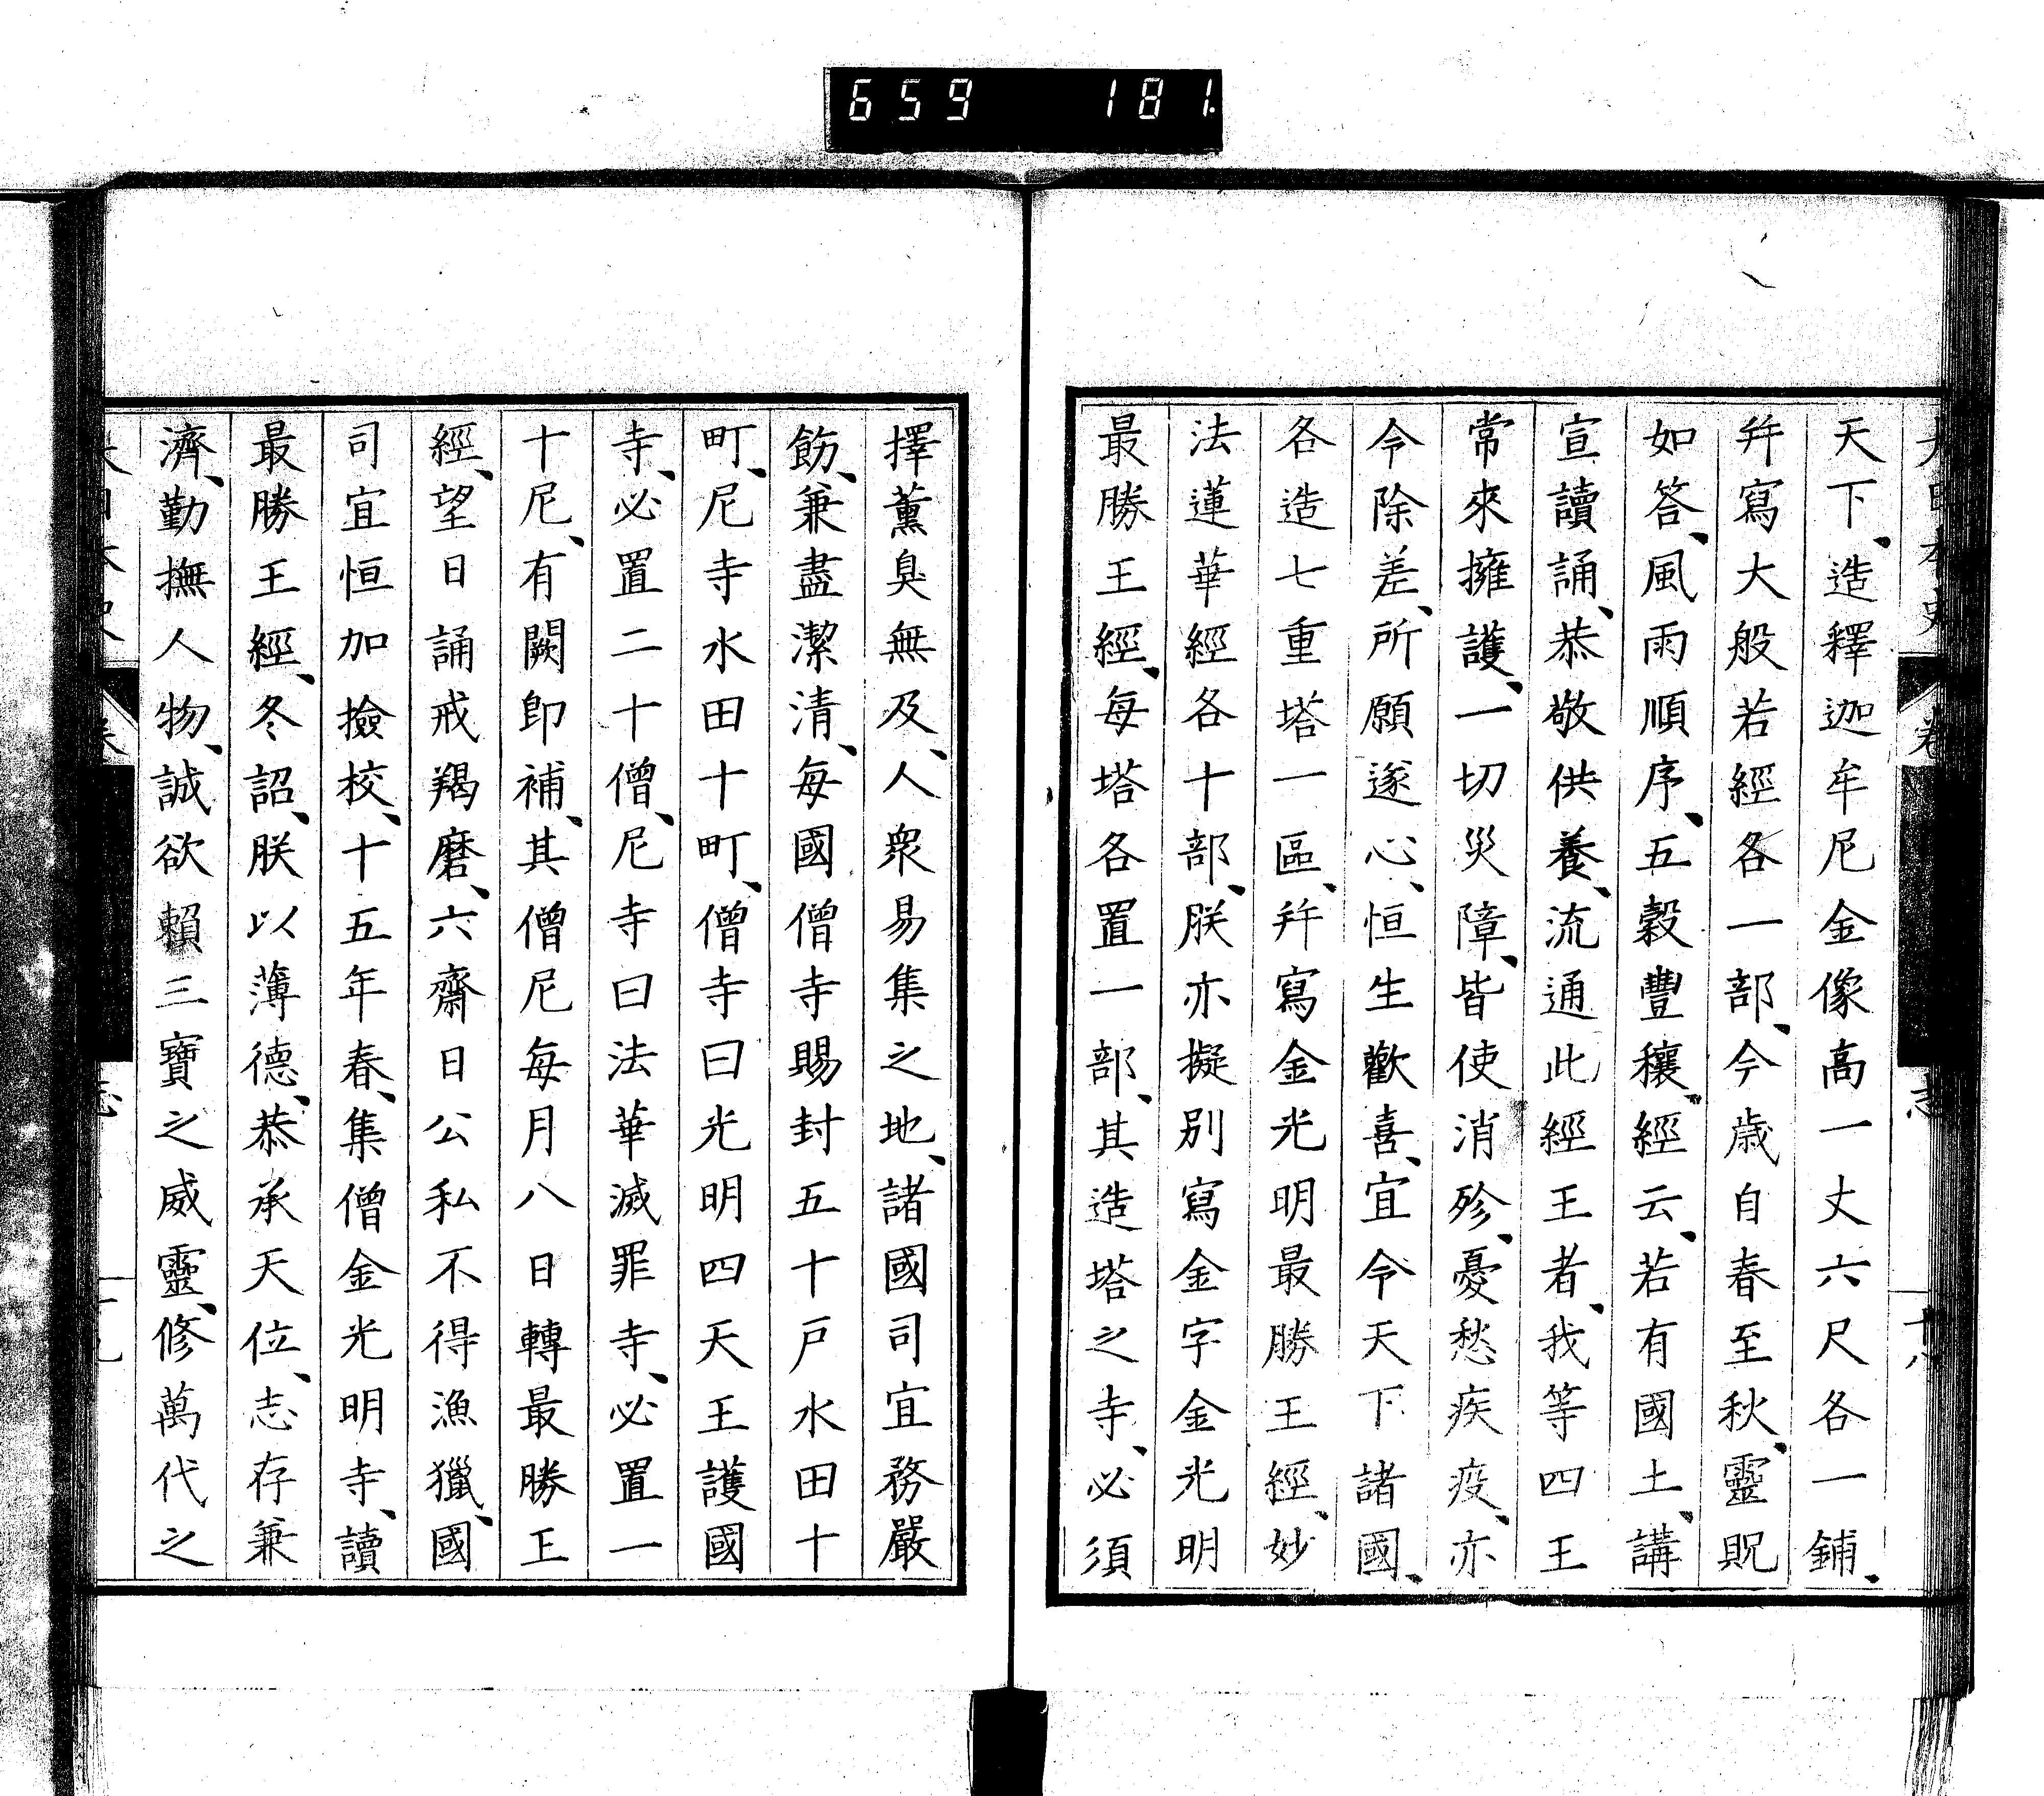 659 181
天下、造釋迦牟尼金像高一丈六尺各一鋪、
幷寫大般若經各一部、今歲自春至秋、靈貺
如答、風雨順序、五穀豐穰、經云、若有國土、講
宣讀誦、恭敬供養、流通此經王者、我等四王
常來擁護、一切災障、皆使消殄、憂愁疾疫、亦
令除差、所願遂心、恒生歡喜、宜令天下諸國、
各造七重塔一區、幷寫金光明最勝王經、妙
法蓮華經各十部、朕亦擬別寫金字金光明
最勝王經、每塔各置一部、其造塔之寺、必須
擇薰臭無及、人衆易集之地、諸國司宜務嚴
飭、兼盡潔清、每國僧寺賜封五十戶水田十
町、尼寺水田十町、僧寺曰光明四天王護國
寺、必置二十僧、尼寺曰法華滅罪寺、必置一
十尼、有闕卽補、其僧尼每月八日轉最勝王
經、望日誦戒羯磨、六齋日公私不得漁獵、國
司宜恒加撿校、十五年春、集僧金光明寺、讀
最勝王經、冬詔、朕以薄德、恭承天位、志存兼
濟、勤撫人物、誠欲賴三寶之威靈、修萬代之